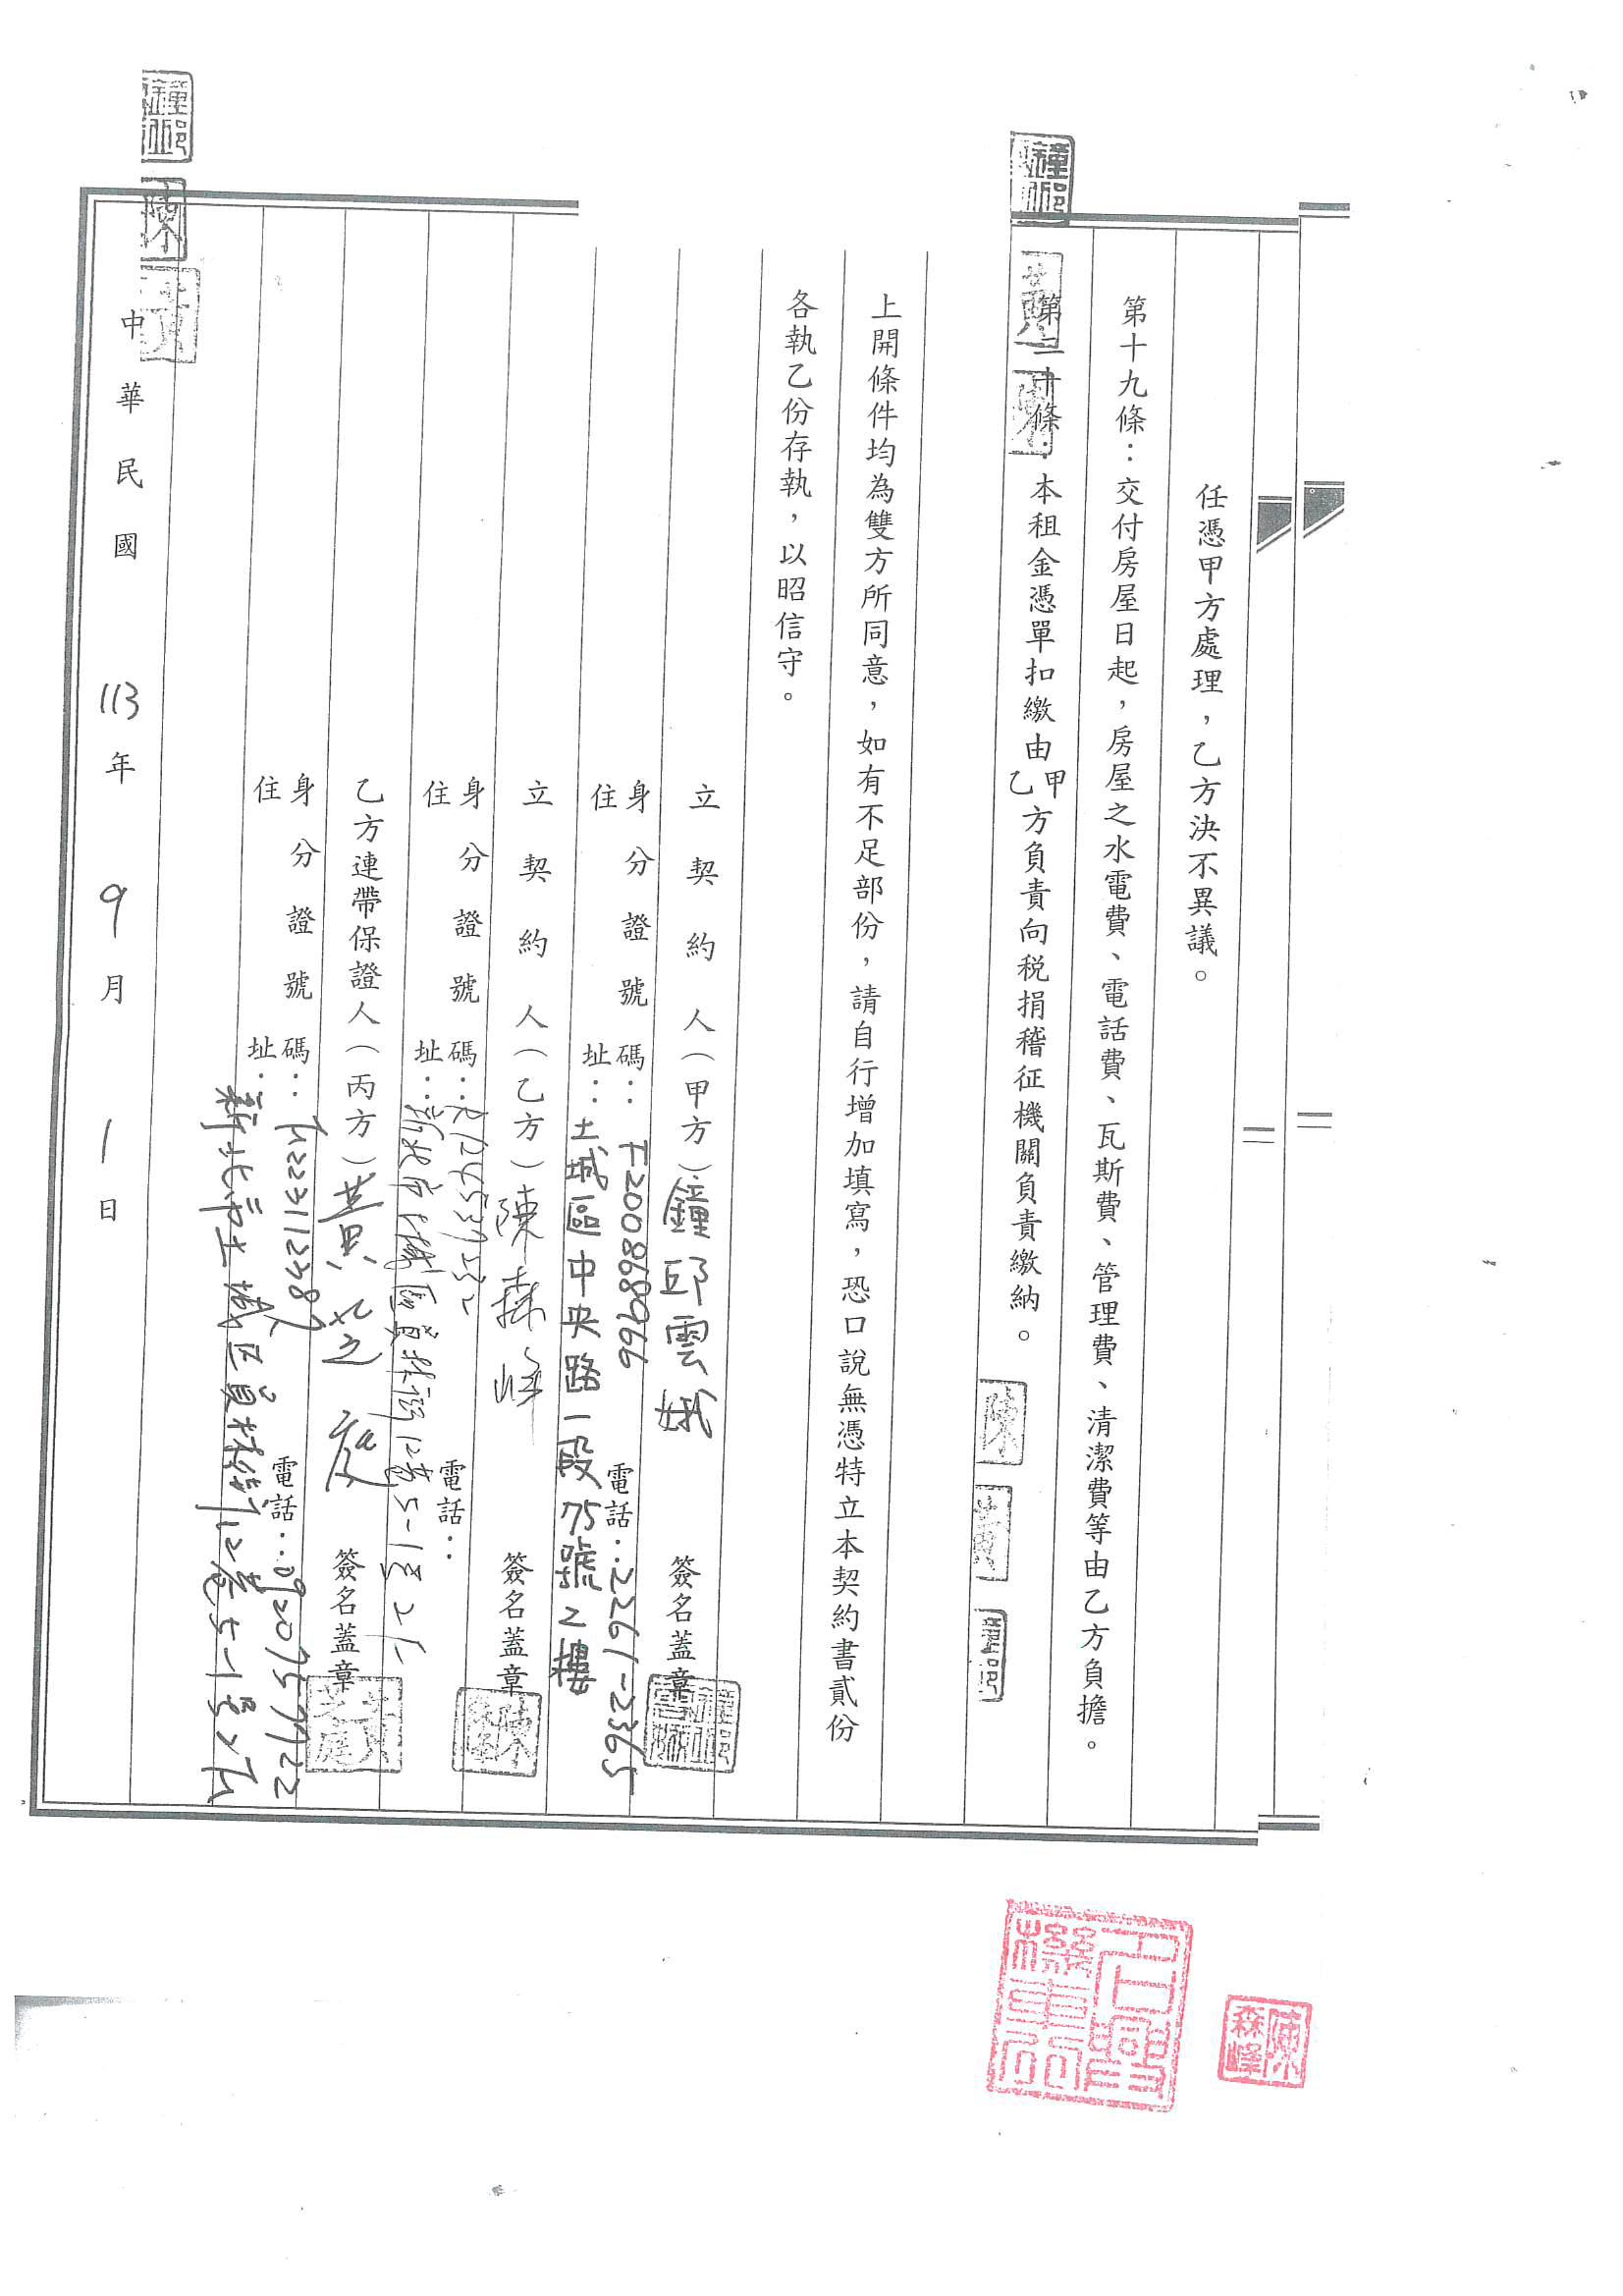 任憑甲方處理，乙方決不異議。
第十九條：交付房屋日起，房屋之水電費、電話費、瓦斯費、管理費、清潔費等由乙方負擔。
第二十條：本租金憑單扣繳由甲乙方負責向稅捐稽征機關負責繳納。
上開條件均為雙方所同意，如有不足部份，請自行增加填寫，恐口說無憑特立本契約書貳份
各執乙份存執，以昭信守。
立契約人（甲方）鐘邱雲娥 簽名蓋章
身分證號碼：F200898996 電話：2261-2395
住址：土城區中央路一段75號2樓
立契約人（乙方）陳森峰 簽名蓋章
身分證號碼： 電話：
住址：新北市土城區員林街12巷5-1號2F
乙方連帶保證人（丙方）黃芝庭 簽名蓋章
身分證號碼： 電話：0920759922
住址：新北市土城區員林街12巷5-1號2F
中華民國113年9月1日
陳森峰